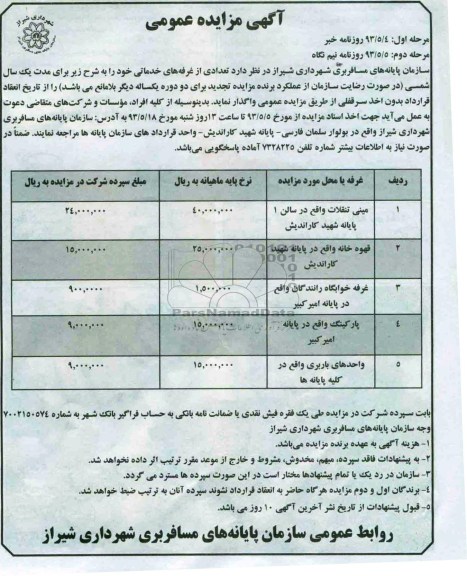 آگهی مزایده عمومی
شهرداری شیراز
مرحله اول: ۹۳/۵/۴ روزنامه خبر
مرحله دوم: ۹۳/۵/۵ روزنامه نیم نگاه
سازمان پایانه‌های مسافربری شهرداری شیراز در نظر دارد تعدادی از غرفه‌های خدماتی خود را به شرح زیر برای مدت یک سال
شمسی (در صورت رضایت سازمان از عملکرد برنده مزایده تجدید برای دو دوره یکساله دیگر بلامانع می باشد) را از تاریخ انعقاد
قرارداد بدون اخذ سرقفلی از طریق مزایده عمومی واگذار نماید. بدینوسیله از کلیه افراد، مؤسسات و شرکت‌های متقاضی دعوت
به عمل می‌آید جهت اخذ اسناد مزایده از مورخ ۹۳/۵/۵ تا ساعت ۱۳ روز شنبه مورخ ۹۳/۵/۱۸ به آدرس: سازمان پایانه‌های مسافربری
شهرداری شیراز واقع در بولوار سلمان فارسی- پایانه شهید کاراندیش- واحد قرارداد های سازمان پایانه ها مراجعه نمایند. ضمناً در
صورت نیاز به اطلاعات بیشتر شماره تلفن ۷۳۲۸۲۲۵ آماده پاسخگویی می‌باشد.
ردیف غرفه یا محل مورد مزایده نرخ پایه ماهیانه به ریال مبلغ سپرده شرکت در مزایده به ریال
۱ مینی تنقلات واقع در سالن ۱ پایانه شهید کاراندیش ۴۰,۰۰۰,۰۰۰ ۲۴,۰۰۰,۰۰۰
۲ قهوه خانه واقع در پایانه شهید کاراندیش ۲۵,۰۰۰,۰۰۰ ۱۵,۰۰۰,۰۰۰
۳ غرفه خوابگاه رانندگان واقع در پایانه امیرکبیر ۱,۵۰۰,۰۰۰ ۹۰۰,۰۰۰
۴ پارکینگ واقع در پایانه امیرکبیر ۱۵,۰۰۰,۰۰۰ ۹,۰۰۰,۰۰۰
۵ واحدهای باربری واقع در کلیه پایانه ها ۱۵,۰۰۰,۰۰۰ ۹,۰۰۰,۰۰۰
ParsNamadData
بابت سپرده شرکت در مزایده طی یک فقره فیش نقدی یا ضمانت نامه بانکی به حساب فراگیر بانک شهر به شماره ۷۰۰۲۱۵۰۵۷۴
وجه سازمان پایانه‌های مسافربری شهرداری شیراز
۱- هزینه آگهی به عهده برنده مزایده می‌باشد.
۲- به پیشنهادات فاقد سپرده، مبهم، مخدوش، مشروط و خارج از موعد مقرر ترتیب اثر داده نخواهد شد.
۳- سازمان در رد یک یا تمام پیشنهادها مختار است در این صورت سپرده ها مسترد می گردد.
۴- برندگان اول و دوم مزایده هرگاه حاضر به انعقاد قرارداد نشوند سپرده آنان به ترتیب ضبط خواهد شد.
۵- قبول پیشنهادات از تاریخ نشر آخرین آگهی ۱۰ روز می باشد.
روابط عمومی سازمان پایانه‌های مسافربری شهرداری شیراز